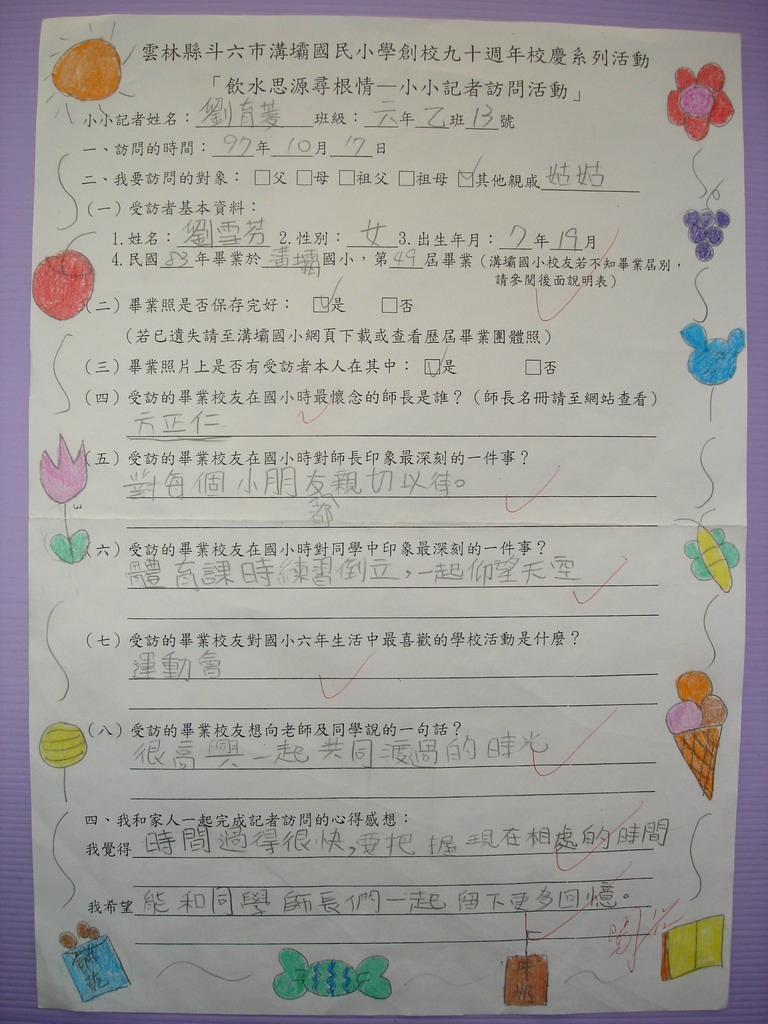 雲林縣斗六市溝壩國民小學創校九十週年校慶系列活動
「飲水思源尋根情—小小記者訪問活動」
小小記者姓名：劉育菱 班級：六年乙班13號
一、訪問的時間：97年10月17日
二、我要訪問的對象：□父 □母 □祖父 □祖母 ☑其他親戚 姑姑
（一）受訪者基本資料：
1.姓名：劉雪芬 2.性別：女 3.出生年月：7年19月
4.民國83年畢業於溝壩國小，第49屆畢業（溝壩國小校友若不知畢業屆別，
請參閱後面說明表）
（二）畢業照是否保存完好：☑是 □否
（若已遺失請至溝壩國小網頁下載或查看歷屆畢業團體照）
（三）畢業照片上是否有受訪者本人在其中：☑是 □否
（四）受訪的畢業校友在國小時最懷念的師長是誰？（師長名冊請至網站查看）
方正仁
（五）受訪的畢業校友在國小時對師長印象最深刻的一件事？
對每個小朋友都親切以待。
（六）受訪的畢業校友在國小時對同學中印象最深刻的一件事？
體育課時練習倒立，一起仰望天空
（七）受訪的畢業校友對國小六年生活中最喜歡的學校活動是什麼？
運動會
（八）受訪的畢業校友想向老師及同學說的一句話？
很高興一起共同渡過的時光
四、我和家人一起完成記者訪問的心得感想：
我覺得 時間過得很快，要把握現在相處的時間
我希望 能和同學師長們一起留下更多回憶。